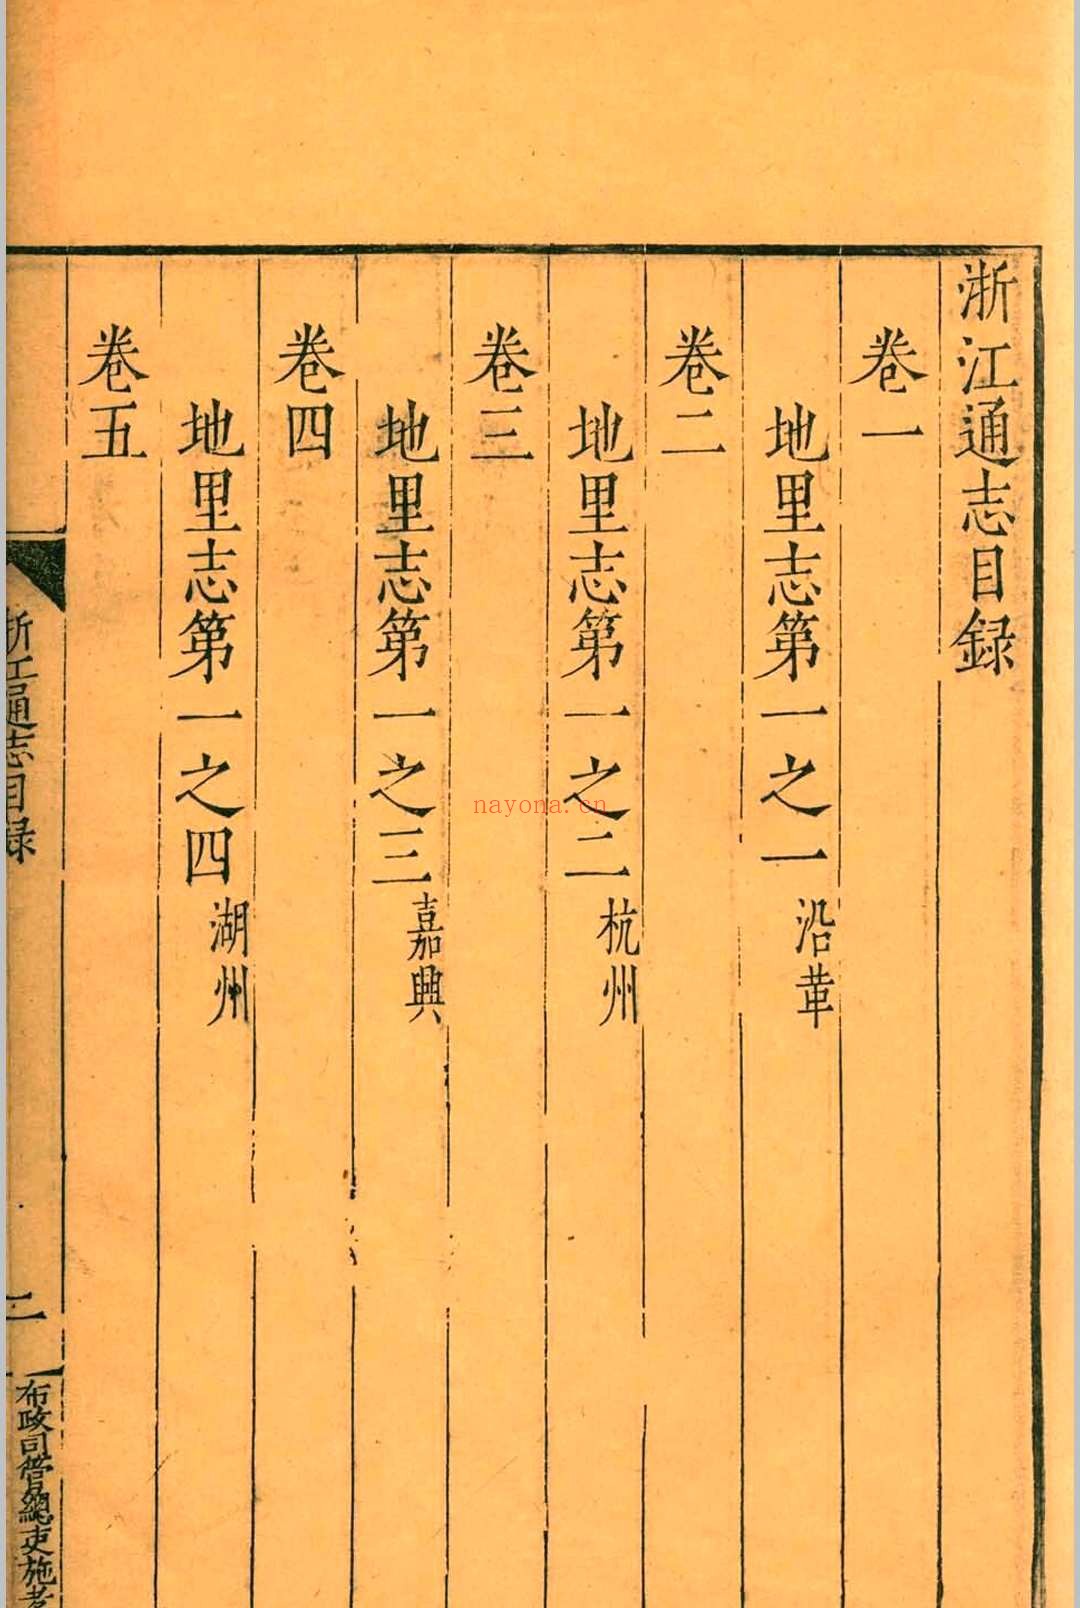 浙江通志目録
卷一
地里志第一之一 沿革
卷二
地里志第一之二 杭州
卷三
地里志第一之三 嘉興
卷四
地里志第一之四 湖州
卷五
浙江通志目録
二
布政司管總吏施孝
nayona.cn